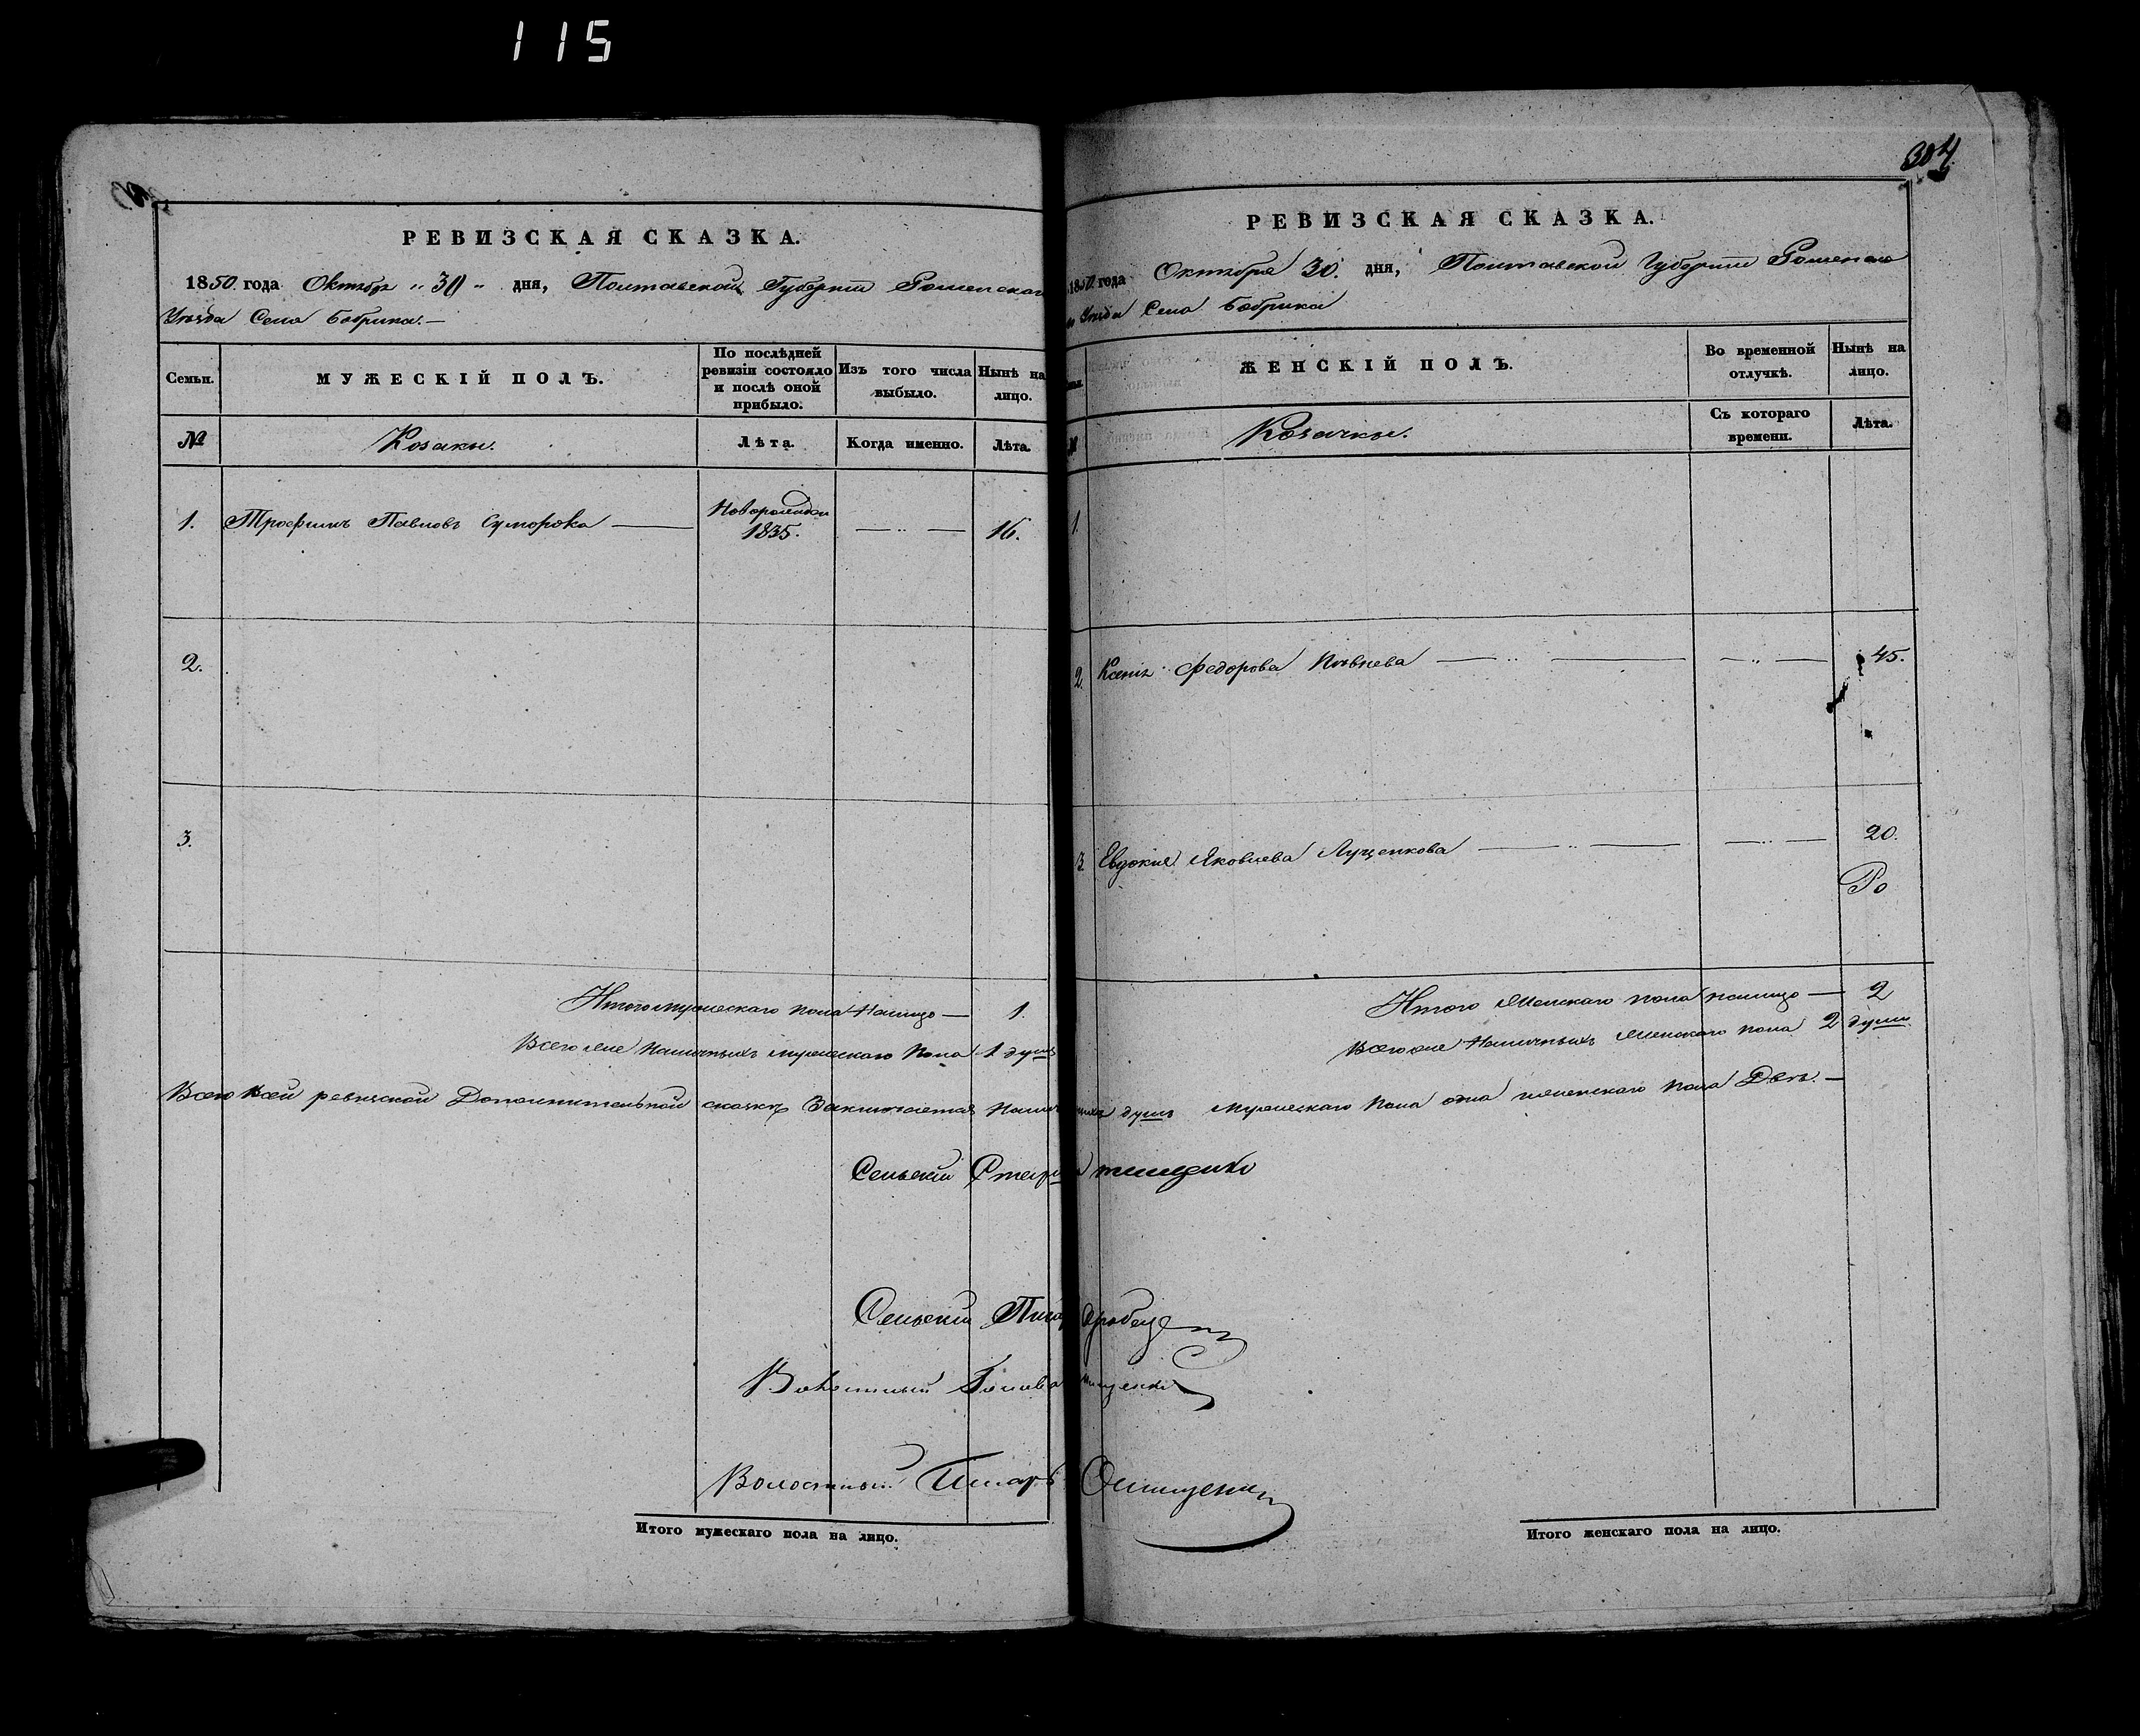 115
304
РЕВИЗСКАЯ СКАЗКА.
1850 года Октября "30" дня, Полтавской Губерніи Роменскаго
Уѣзда Села Бобрика.—
Семьи.
МУЖЕСКІЙ ПОЛЪ.
По послѣдней ревизіи состояло и послѣ оной прибыло.
Изъ того числа выбыло.
Нынѣ на лицо.
№
Козаки.
Лѣта.
Когда именно.
Лѣта.
1. Трофимъ Павловъ Суморока — Новорожден 1835. — " — 16.
2.
3.
Итого мужескаго пола налицо — 1.
Всего же наличныхъ мужескаго пола 1 душа
РЕВИЗСКАЯ СКАЗКА.
1850 года Октября 30. дня, Полтавской Губерніи Роменскаго
Уѣзда Села Бобрика
ЖЕНСКІЙ ПОЛЪ.
Во временной отлучкѣ.
Нынѣ на лицо.
№
Козачки.
Съ котораго времени.
Лѣта.
1.
2. Ксенія Федорова — " — — " — 45.
3. Евдокія Яковлева Лущенкова — " — — " — 20.
Итого Женскаго пола налицо — 2
Всего же Наличныхъ Женскаго пола 2 души
Всего въ сей ревизской Дополнительной сказкѣ Заключается Наличныхъ душъ мужескаго пола одна женскаго пола Двѣ.—
Сельскій
Сельскій Писарь
Волостный Голова
Волостный Писарь
Итого мужескаго пола на лицо.
Итого женскаго пола на лицо.